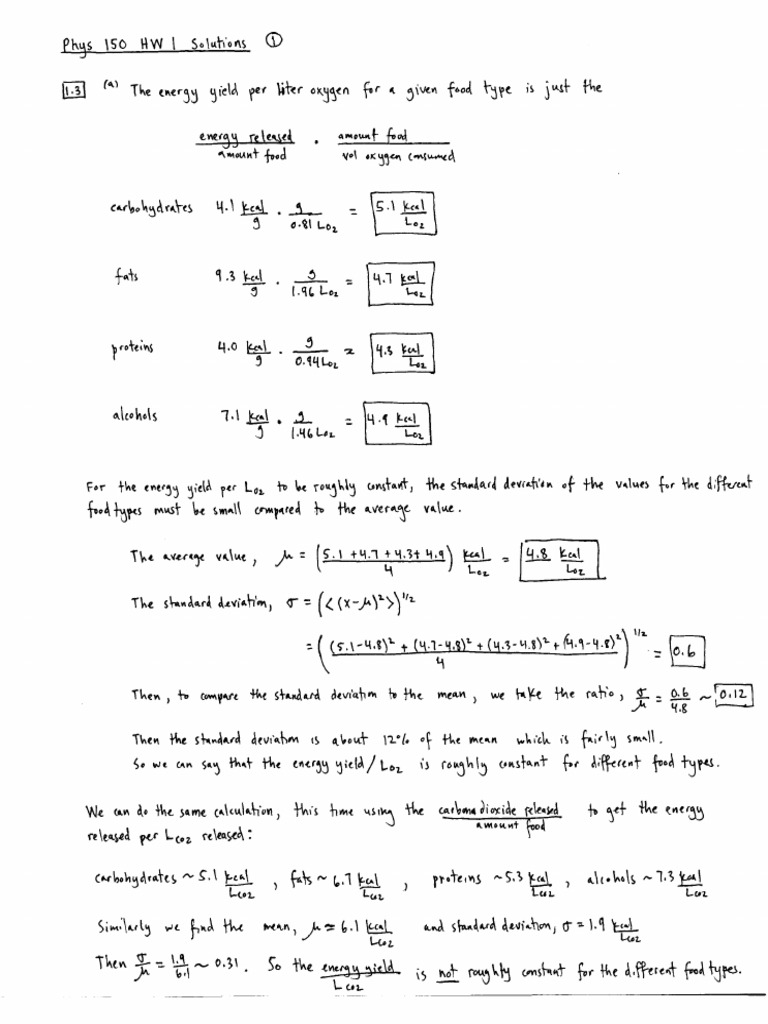 Phys 150 HW 1 Solutions ①
1.3 (a) The energy yield per liter oxygen for a given food type is just the
energy released / amount food · amount food / vol oxygen consumed
carbohydrates 4.1 kcal/g · g/0.81 L_O2 = 5.1 kcal/L_O2
fats 9.3 kcal/g · g/1.96 L_O2 = 4.7 kcal/L_O2
proteins 4.0 kcal/g · g/0.94 L_O2 = 4.3 kcal/L_O2
alcohols 7.1 kcal/g · g/1.46 L_O2 = 4.9 kcal/L_O2
For the energy yield per L_O2 to be roughly constant, the standard deviation of the values for the different
food types must be small compared to the average value.
The average value, μ = (5.1+4.7+4.3+4.9 / 4) kcal/L_O2 = 4.8 kcal/L_O2
The standard deviation, σ = (<(x-μ)²>)^1/2
= ((5.1-4.8)² + (4.7-4.8)² + (4.3-4.8)² + (4.9-4.8)² / 4)^1/2 = 0.6
Then, to compare the standard deviation to the mean, we take the ratio, σ/μ = 0.6/4.8 ~ 0.12
Then the standard deviation is about 12% of the mean which is fairly small.
So we can say that the energy yield/L_O2 is roughly constant for different food types.
We can do the same calculation, this time using the carbon dioxide released / amount food to get the energy
released per L_CO2 released:
carbohydrates ~ 5.1 kcal/L_CO2, fats ~ 6.7 kcal/L_CO2, proteins ~ 5.3 kcal/L_CO2, alcohols ~ 7.3 kcal/L_CO2
Similarly we find the mean, μ = 6.1 kcal/L_CO2 and standard deviation, σ = 1.9 kcal/L_CO2
Then σ/μ = 1.9/6.1 ~ 0.31. So the energy yield/L_CO2 is not roughly constant for the different food types.